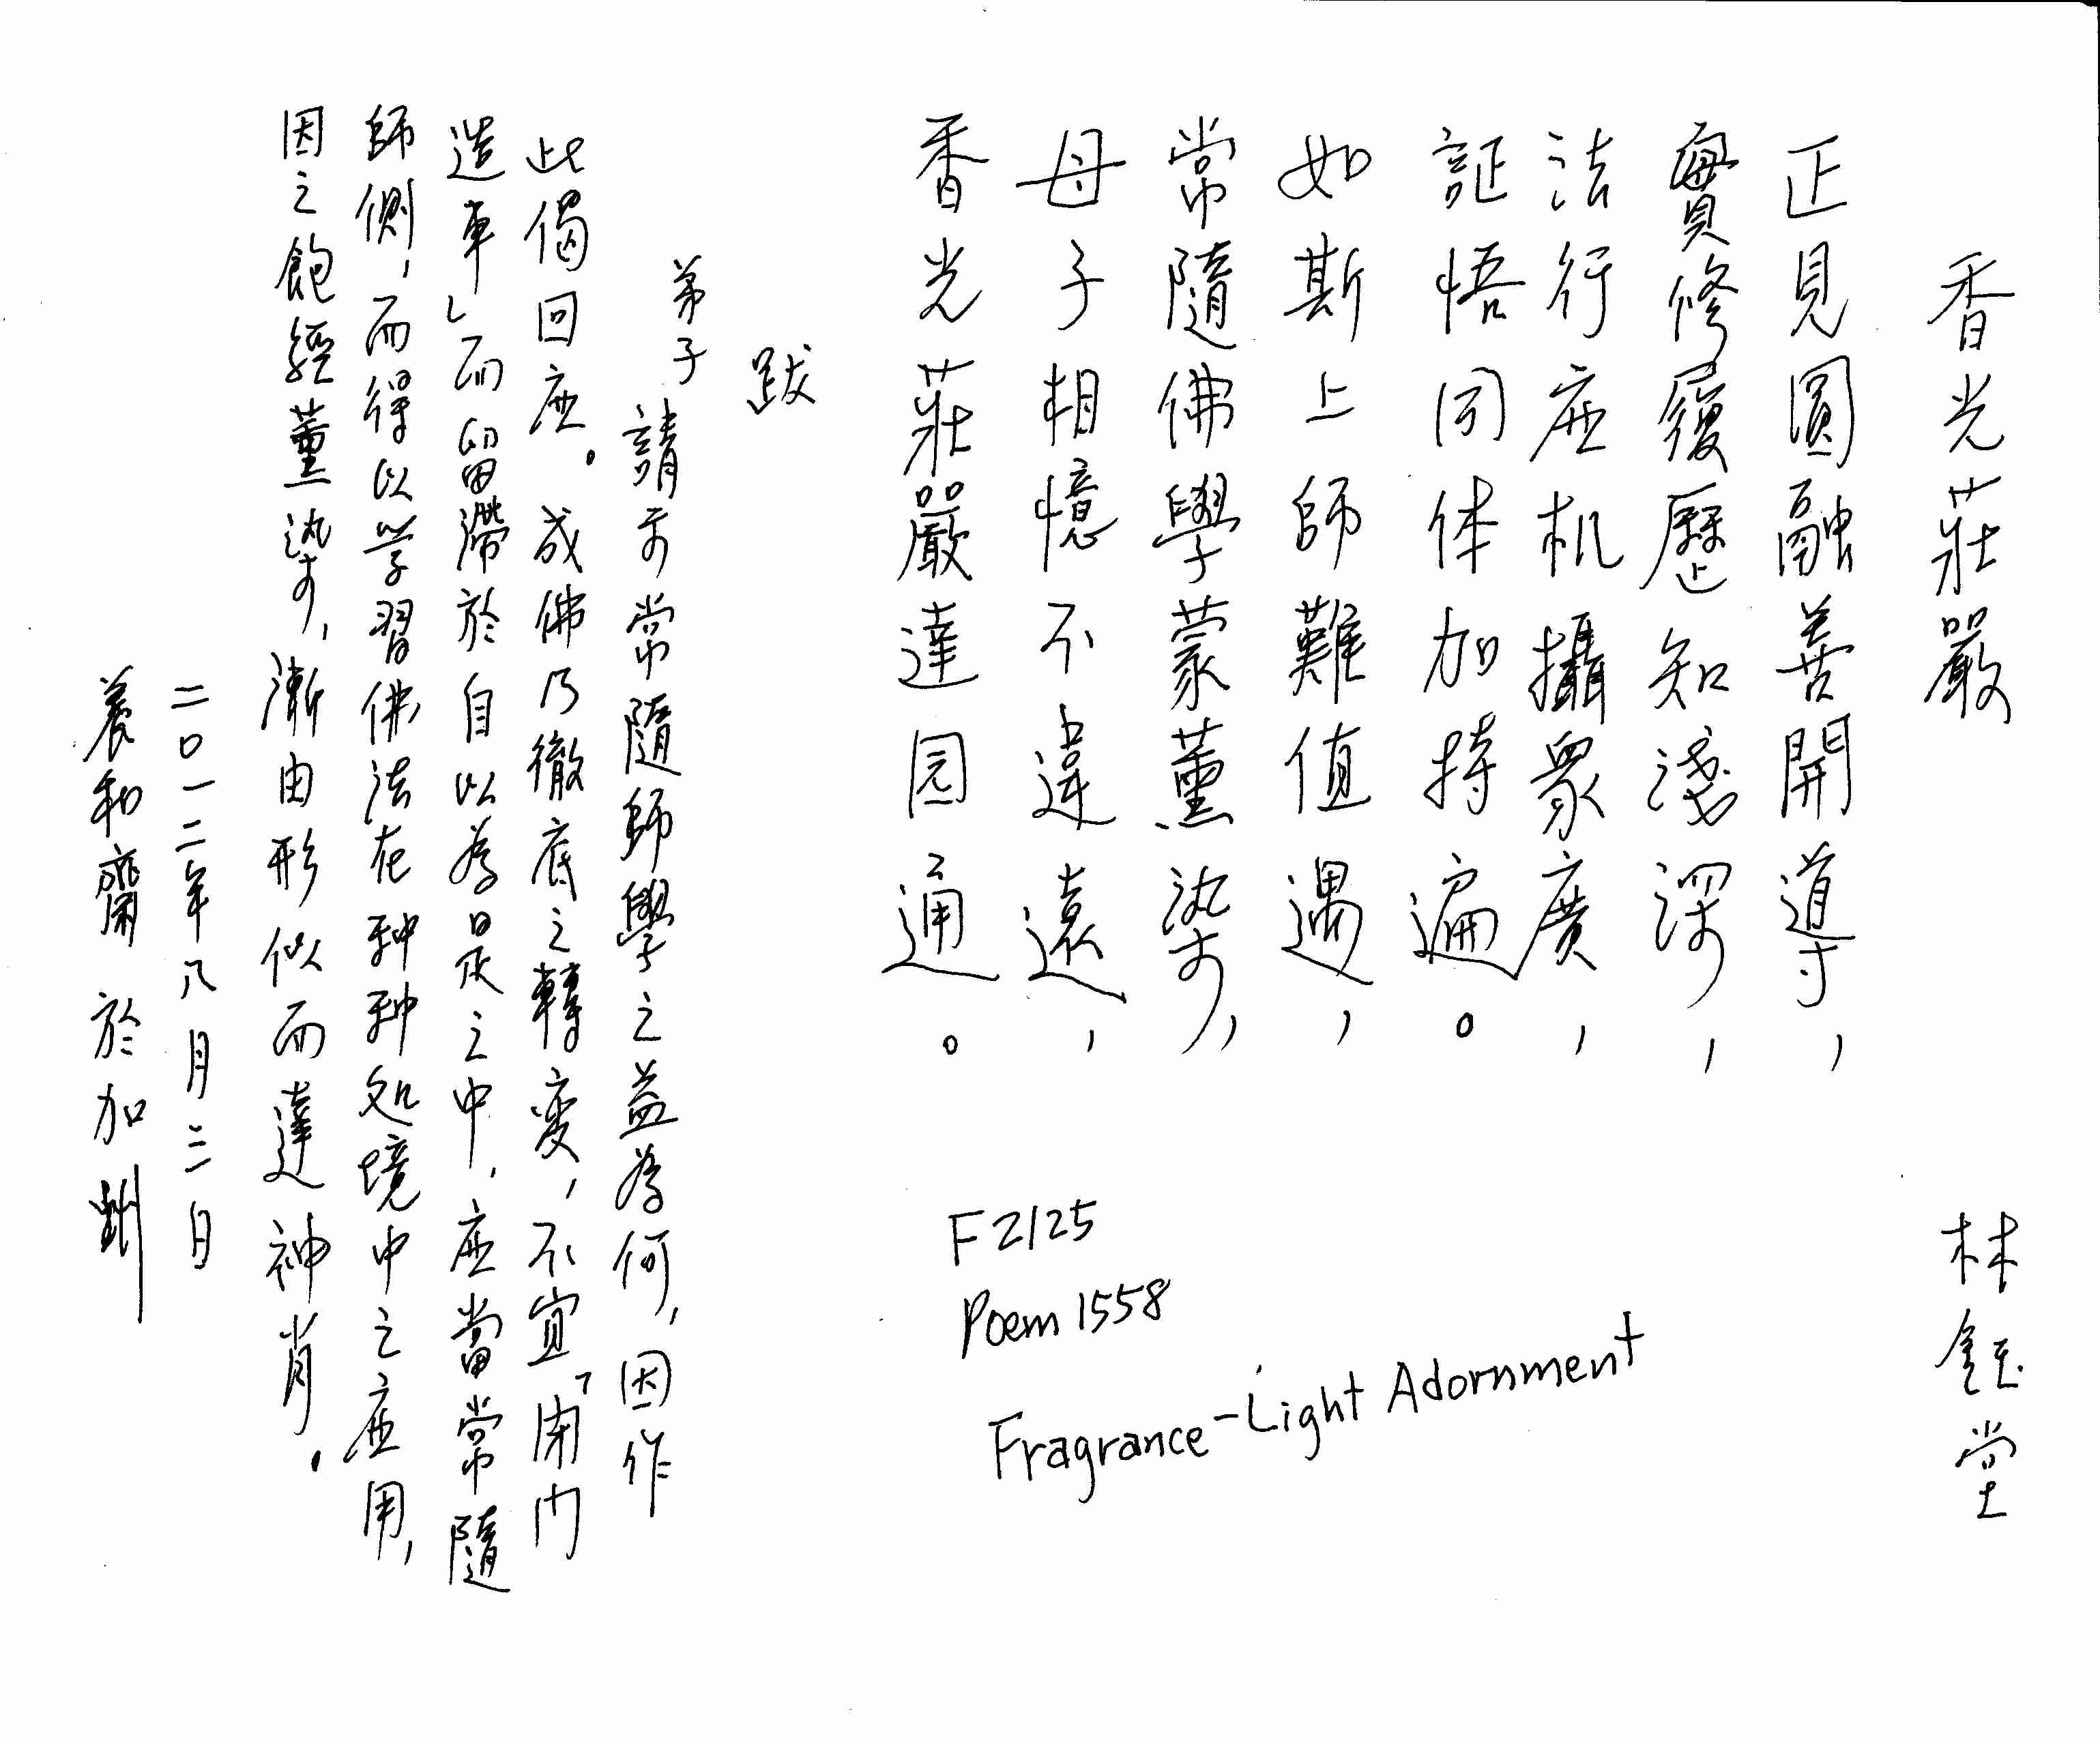 香光莊嚴
林鈺堂
正見圓融善開導，
實修履歷知淺深，
法行应机攝眾廣，
証悟同体加持遍。
如斯上師難值遇，
常隨佛學蒙薰染，
母子相憶不違遠，
香光莊嚴達园通。
跋
弟子
請示常隨師學之益為何，因作
此偈回应。成佛乃徹底之轉变，不宜「闭门
造車」而留滯於自以為是之中，应當常隨
師側，而得以学習佛法在种种处境中之应用，
因之飽經薰染，漸由形似而達神肖。
二〇一二年八月二日
養和齋 於加州
F2125
Poem 1558
Fragrance-Light Adornment